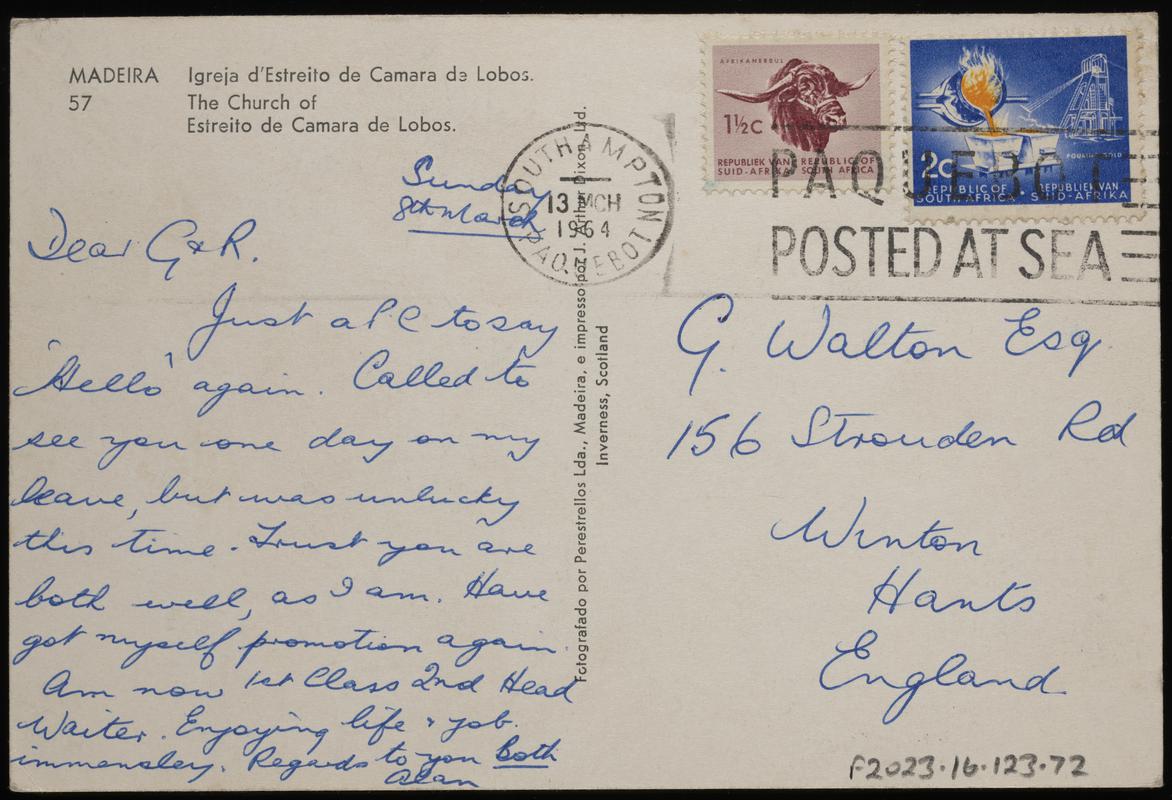 MADEIRA Igreja d'Estreito de Camara de Lobos.
57 The Church of
Estreito de Camara de Lobos.
Sunday
8th March
Dear G & R.
Just a P C to say
'Hello' again. Called to
see you one day on my
leave, but was unlucky
this time. Trust you are
both well, as I am. Have
got myself promotion again.
Am now 1st Class 2nd Head
Waiter. Enjoying life & job.
immensley. Regards to you both
Alan
Fotografado por Perestrellos Lda., Madeira, e impresso por J. Arthur Dixon Ltd.
Inverness, Scotland
SOUTHAMPTON
13 MCH
1964
PAQUEBOT
AFRIKANERBUL
1½c
REPUBLIEK VAN REPUBLIC OF
SUID-AFRIKA SOUTH AFRICA
POURING GOLD
2c
REPUBLIC OF REPUBLIEK VAN
SOUTH AFRICA SUID-AFRIKA
PAQUEBOT
POSTED AT SEA
G. Walton Esq.
156 Strouden Rd
Winton
Hants
England
F2023.16.123.72